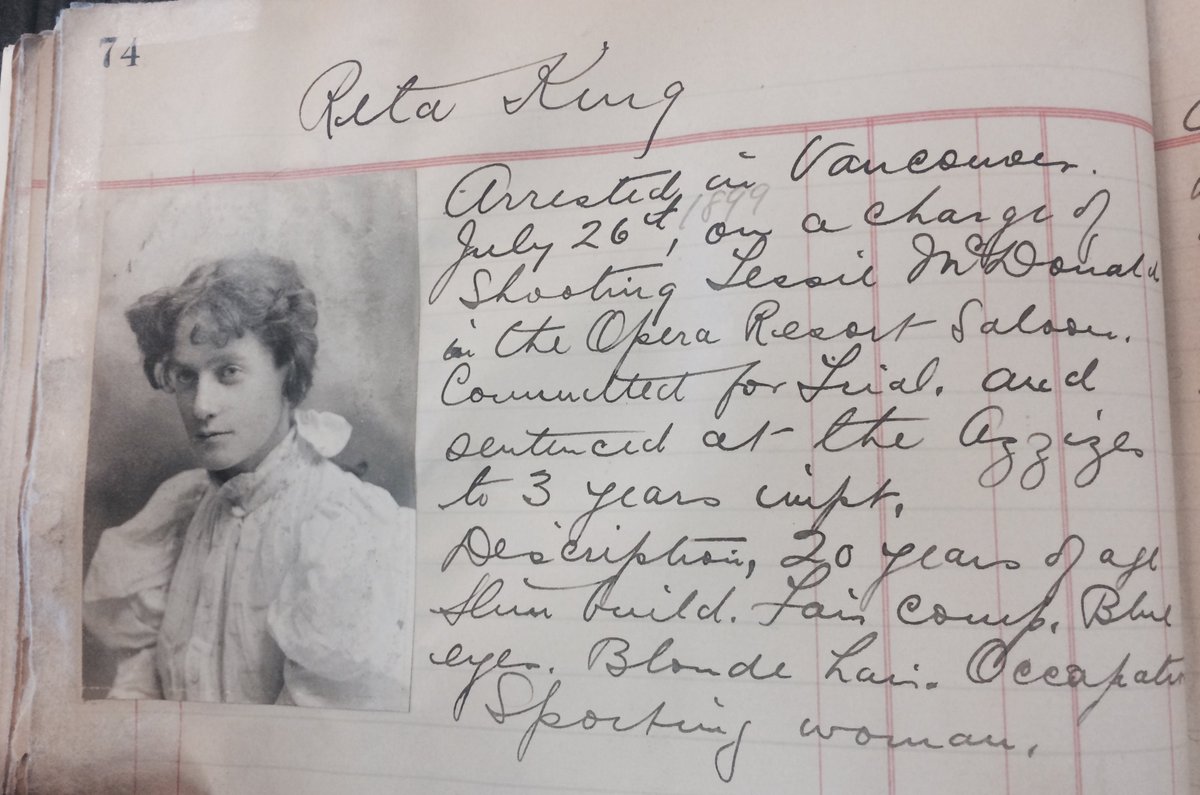 74
Reta King
Arrested in Vancouver.
July 26th, 1899 on a charge of
Shooting Lessie McDonald
in the Opera Resort Saloon.
Committed for Trial. and
sentenced at the Azzizes
to 3 years impt.
Description, 20 years of age
Slim build. Fair comp. Blue
eyes. Blonde hair. Occapatn
Sporting woman.